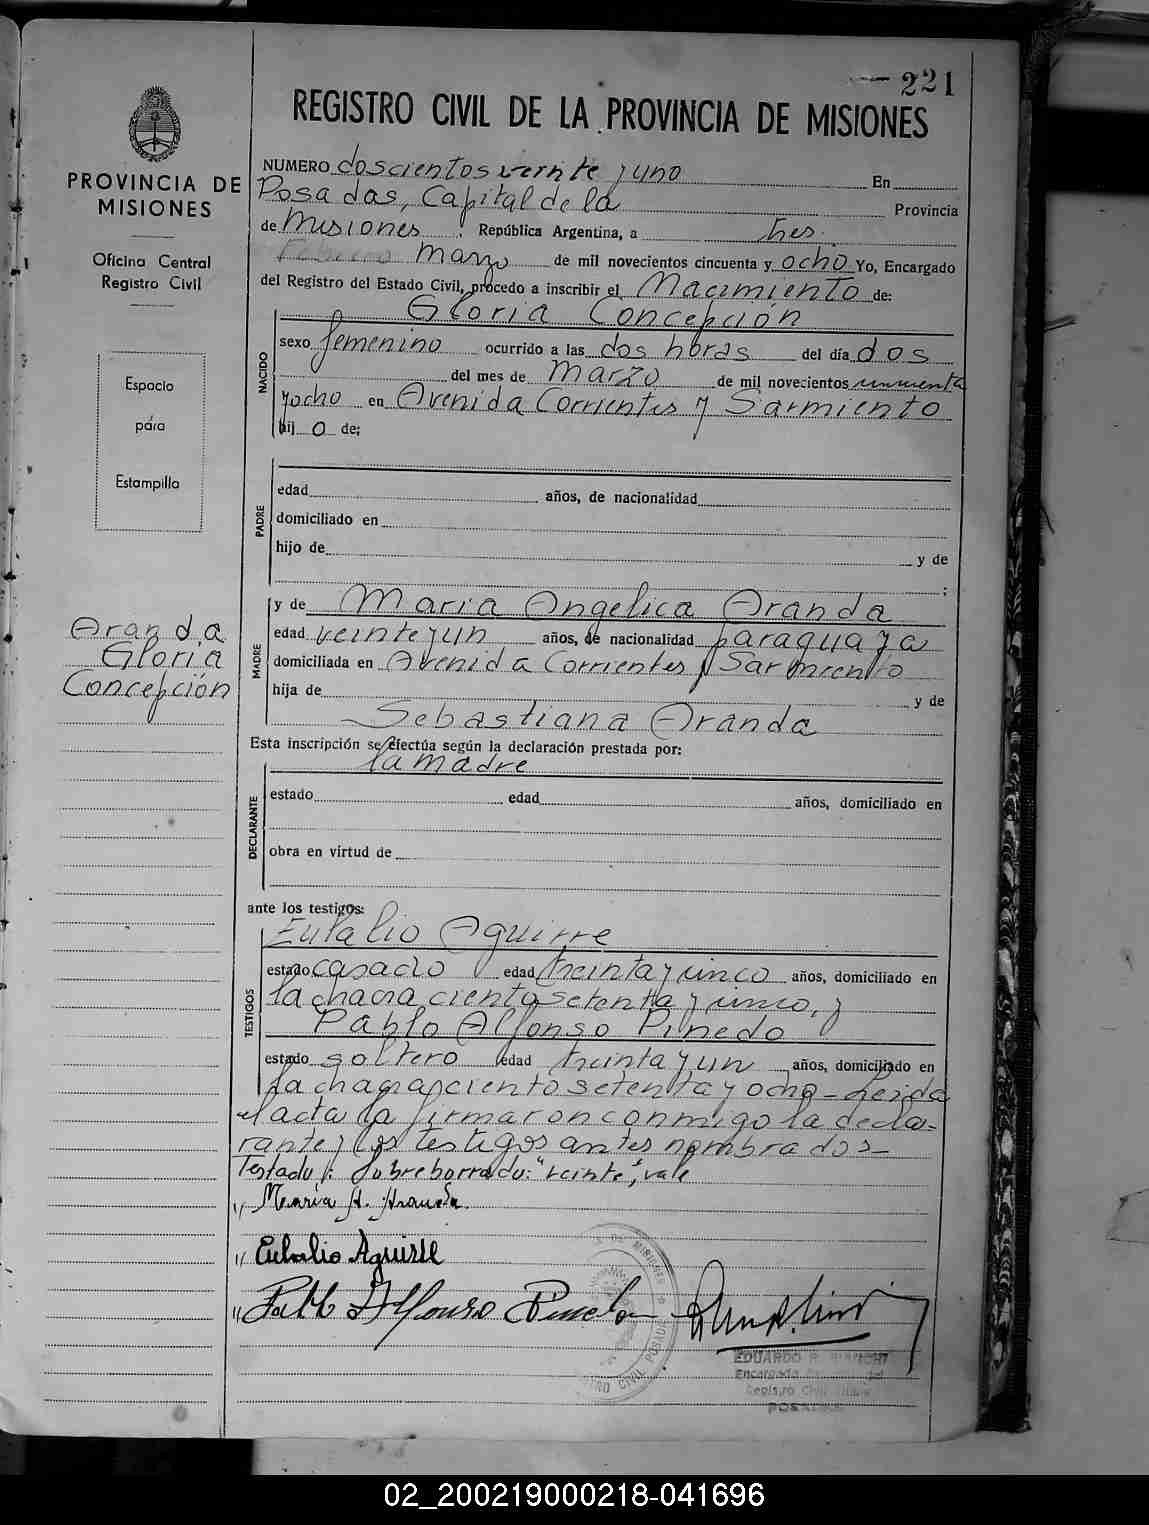 221
REGISTRO CIVIL DE LA PROVINCIA DE MISIONES
PROVINCIA DE
MISIONES
Oficina Central
Registro Civil
Espacio
para
Estampilla
Aranda
Gloria
Concepción
NUMERO doscientos veinte yuno En
Posadas, Capital de la Provincia
de Misiones República Argentina, a tres
Febrero Marzo de mil novecientos cincuenta y ocho Yo, Encargado
del Registro del Estado Civil, procedo a inscribir el Nacimiento de:
Gloria Concepción
NACIDO
sexo femenino ocurrido a las dos horas del día dos
del mes de Marzo de mil novecientos cincuenta
yocho en Avenida Corrientes y Sarmiento
hij a de:
PADRE
edad años, de nacionalidad
domiciliado en
hijo de y de
;
y de Maria Angelica Aranda
MADRE
edad veinteyun años, de nacionalidad paraguaya
domiciliada en Avenida Corrientes y Sarmiento
hija de y de
Sebastiana Aranda
Esta inscripción se efectúa según la declaración prestada por:
la madre
DECLARANTE
estado edad años, domiciliado en
obra en virtud de
ante los testigos:
Eulalio Aguirre
TESTIGOS
estado casado edad treintaycinco años, domiciliado en
la chacra ciento setenta y cinco, y
Pablo Alfonso Pinedo
estado soltero edad treinta y un años, domiciliado en
la chacra ciento setenta y ocho - Leida
el acta la firmaron conmigo la decla-
rante y los testigos antes nombrados-
Testado: Sobreborrado: "veinte", vale
" Maria A. Aranda.
" Eulalio Aguirre
" Pablo Alfonso Pinedo
EDUARDO R. BIANCHI
Encargado
Registro Civil
POSADAS
02_200219000218-041696